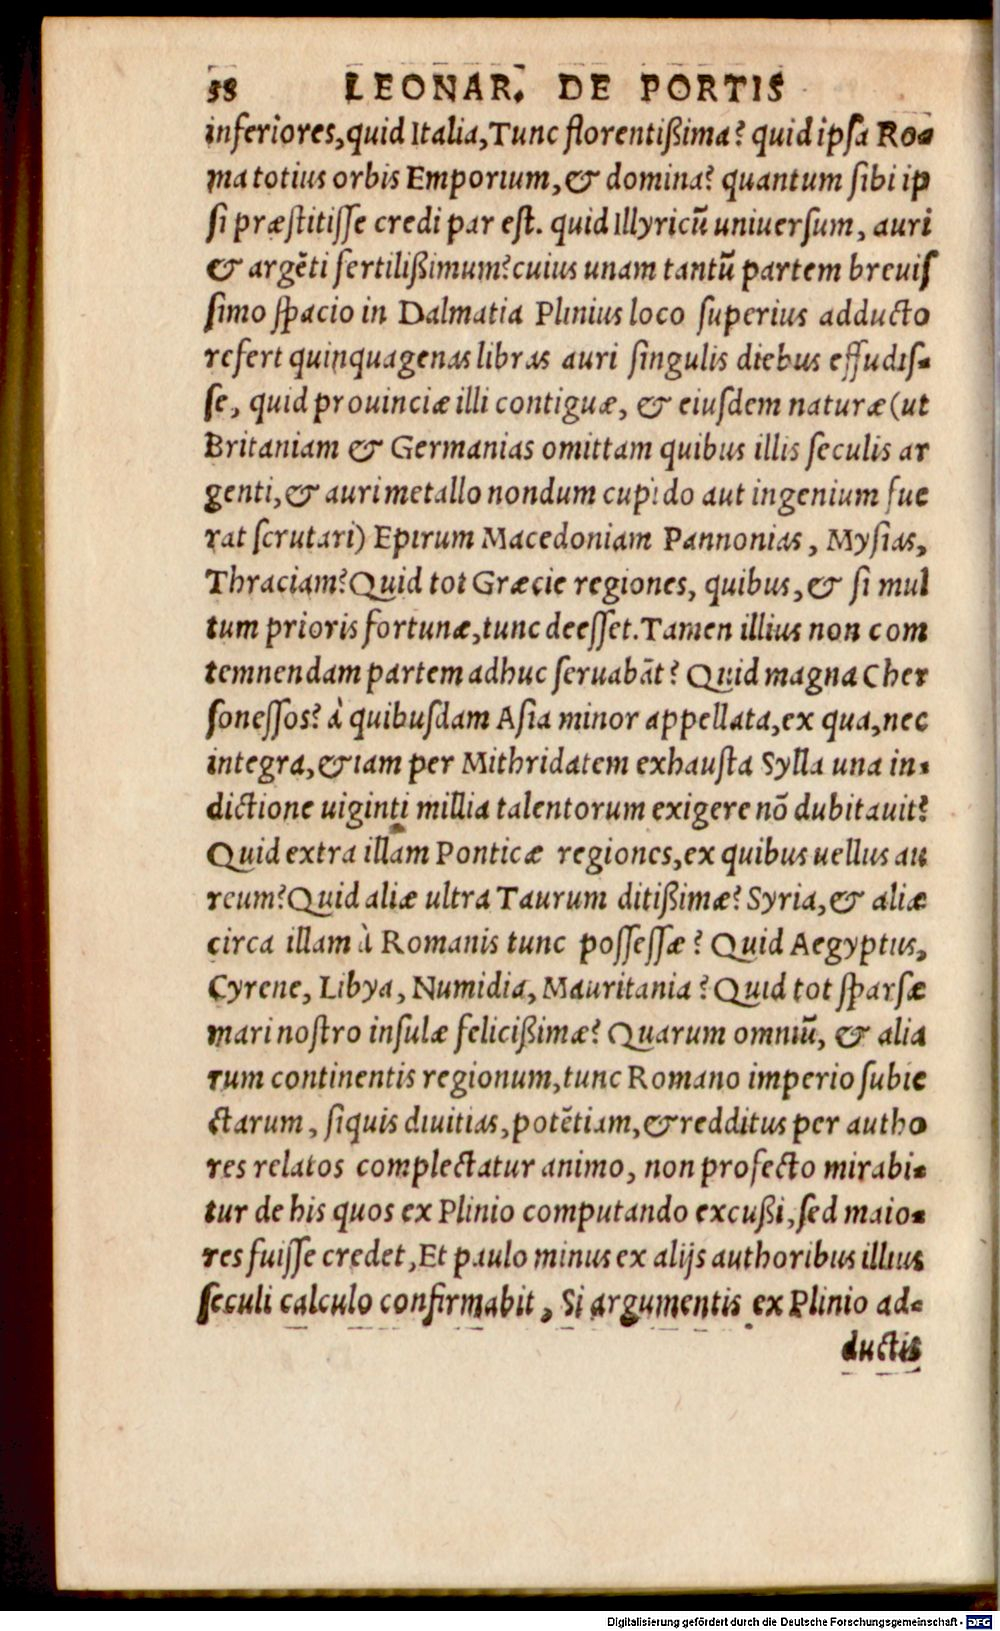 58 LEONAR. DE PORTIS
inferiores,quid Italia,Tunc florentißima? quid ipſa Ro-
ma totius orbis Emporium,& domina? quantum ſibi ip
ſi præſtitiſſe credi par eſt. quid Illyricũ uniuerſum, auri
& argẽti fertilißimum?cuius unam tantũ partem breuiſ
ſimo ſpacio in Dalmatia Plinius loco ſuperius adducto
refert quinquagenas libras auri ſingulis diebus effudiſ-
ſe, quid prouinciæ illi contiguæ, & eiuſdem naturæ(ut
Britaniam & Germanias omittam quibus illis ſeculis ar
genti,& auri metallo nondum cupido aut ingenium fue
rat ſcrutari) Epirum Macedoniam Pannonias, Myſias,
Thraciam?Quid tot Græcie regiones, quibus,& ſi mul
tum prioris fortunæ,tunc deeſſet.Tamen illius non com
temnendam partem adhuc ſeruabãt? Quid magna Cher
ſoneſſos? à quibuſdam Aſia minor appellata,ex qua,nec
integra,&iam per Mithridatem exhauſta Sylla una in-
dictione uiginti millia talentorum exigere nõ dubitauit?
Quid extra illam Ponticæ regiones,ex quibus uellus au
reum?Quid aliæ ultra Taurum ditißimæ? Syria,& aliæ
circa illam à Romanis tunc poſſeſſæ? Quid Aegyptus,
Cyrene, Libya, Numidia, Mauritania? Quid tot ſparſæ
mari noſtro inſulæ feliciſſimæ? Quarum omniũ, & alia
rum continentis regionum,tunc Romano imperio ſubie
ctarum, ſiquis diuitias,potẽtiam,&redditus per autho
res relatos complectatur animo, non profecto mirabi-
tur de his quos ex Plinio computando excußi,ſed maio-
res fuiſſe credet,Et paulo minus ex alijs authoribus illius
ſeculi calculo confirmabit, Si argumentis ex Plinio ad-
ductis
Digitalisierung gefördert durch die Deutsche Forschungsgemeinschaft - DFG